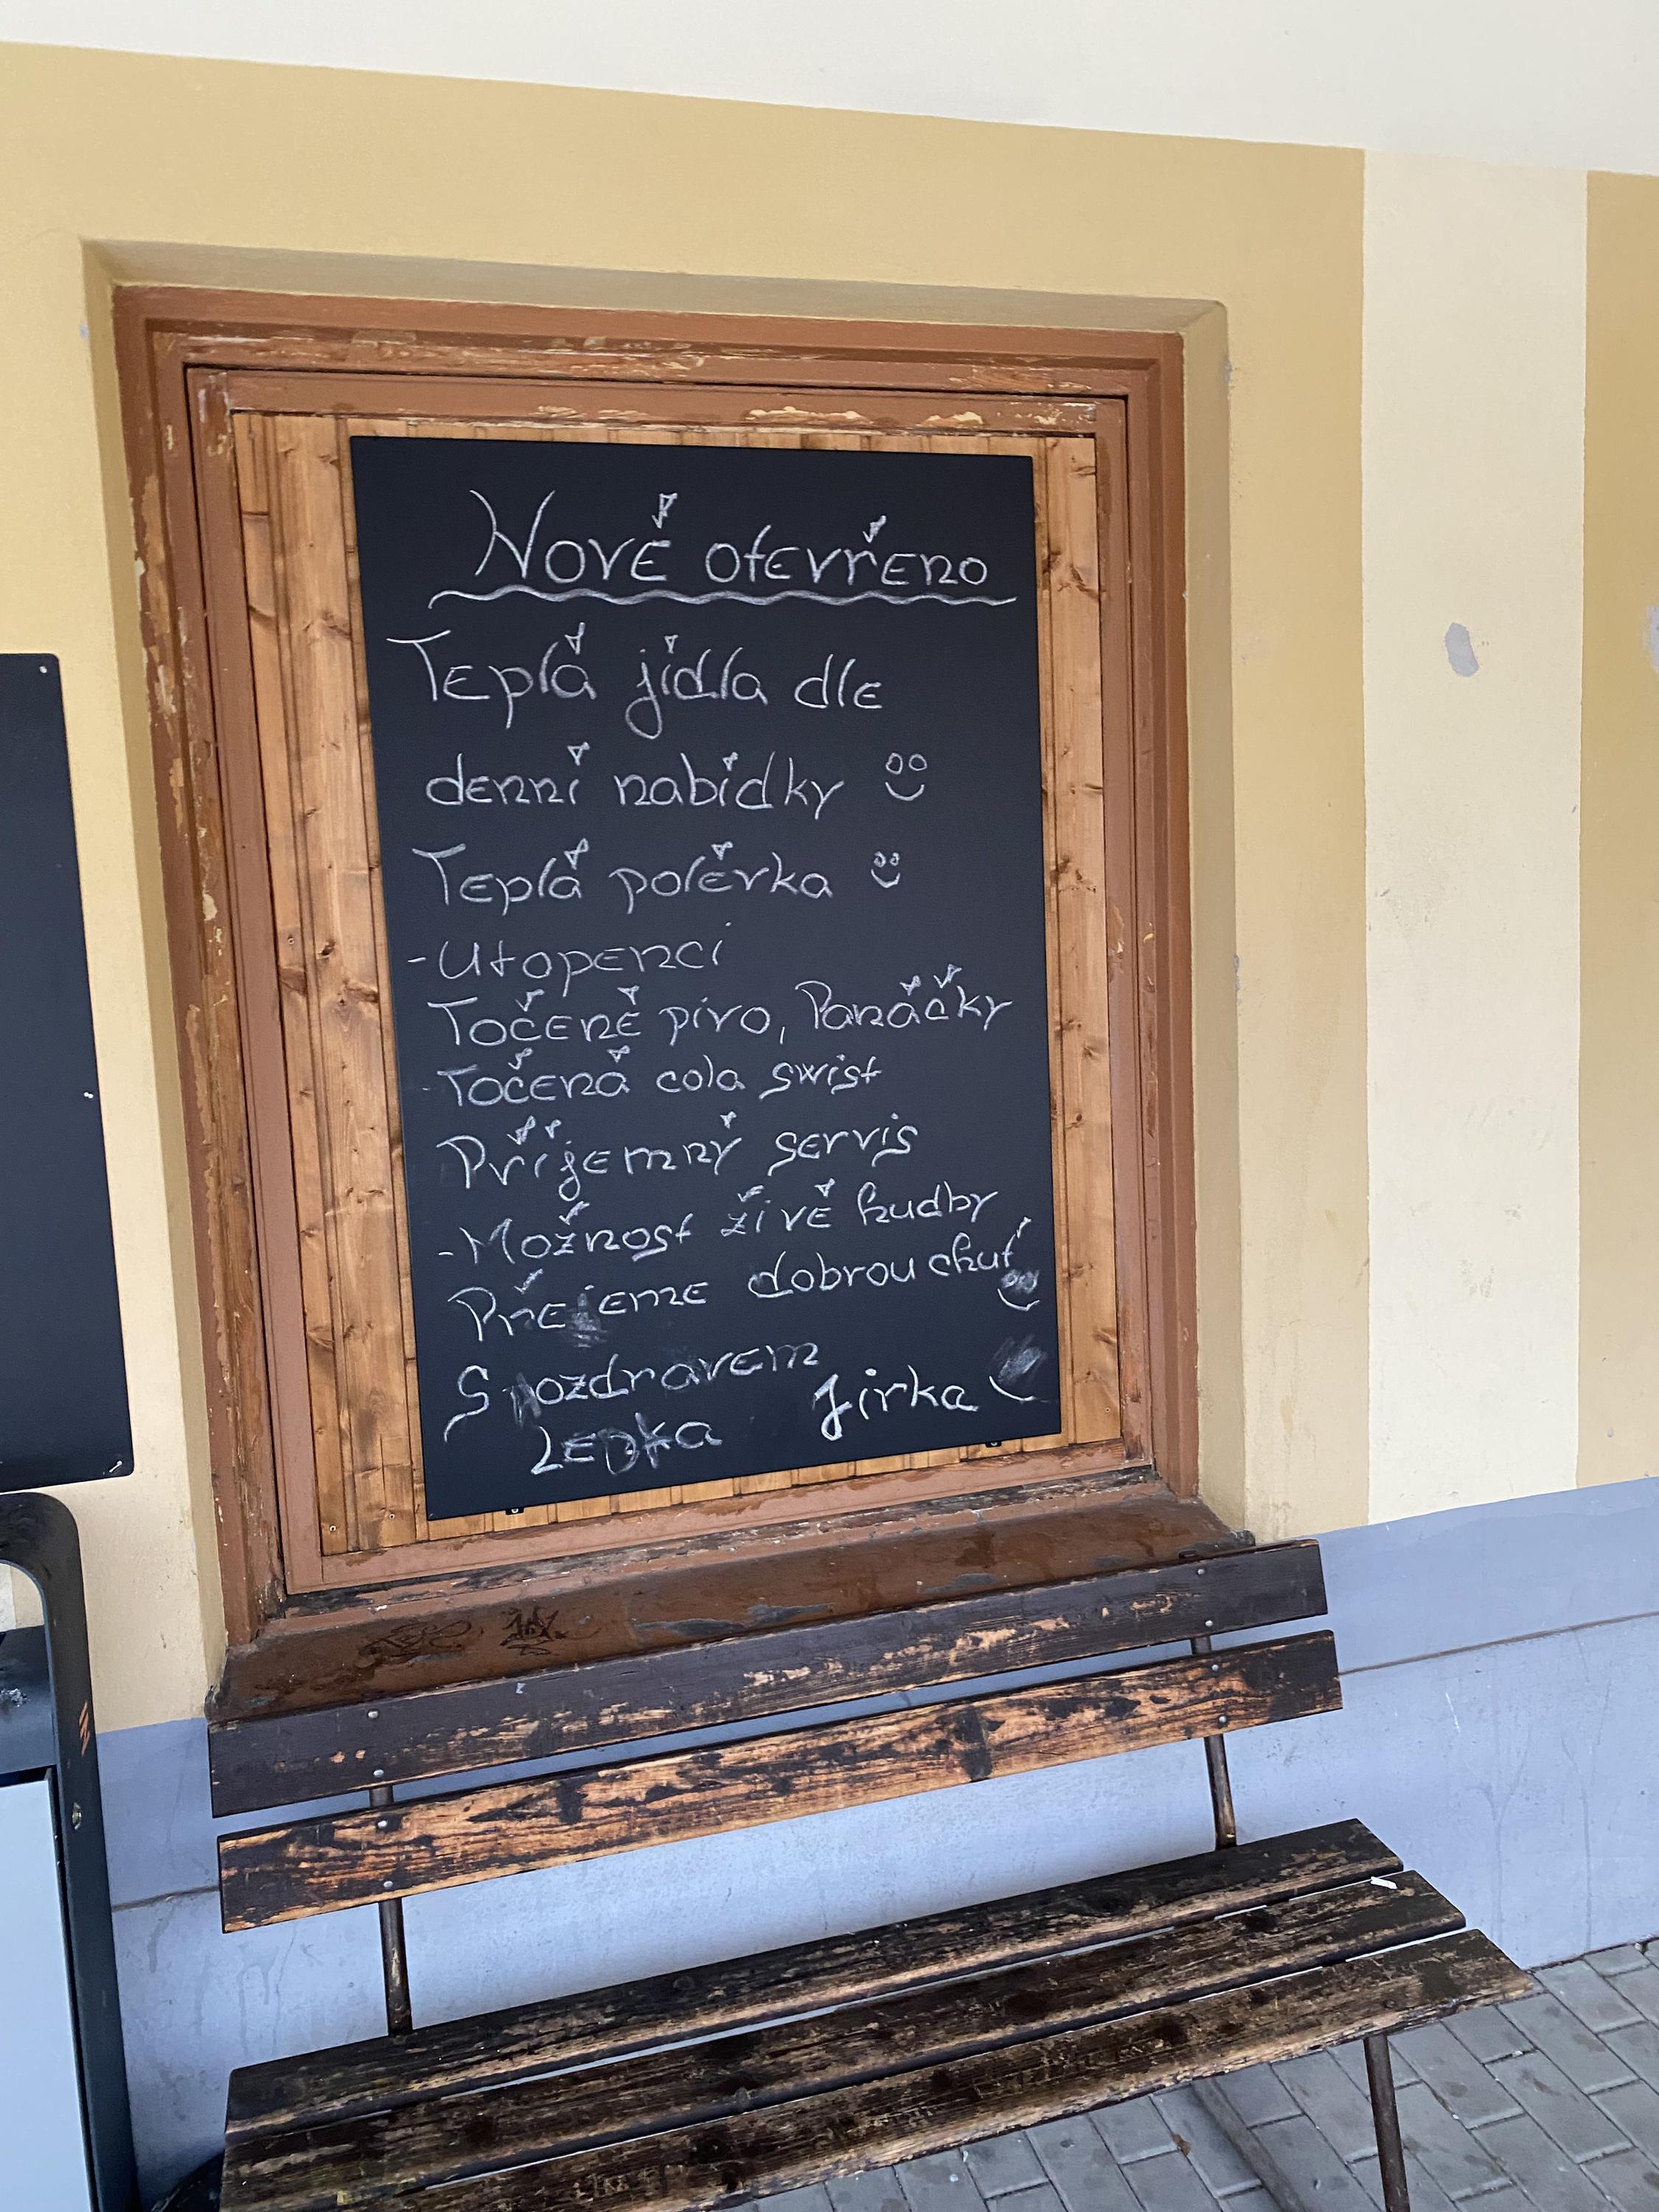 Nově otevřeno
Teplá jídla dle
denní nabídky
Teplá polévka
-Utopenci
Točené pivo, Panáčky
-Točená cola swist
Příjemný servis
-Možnost živé hudby
Přejeme dobrou chuť
S pozdravem
Lenka Jirka